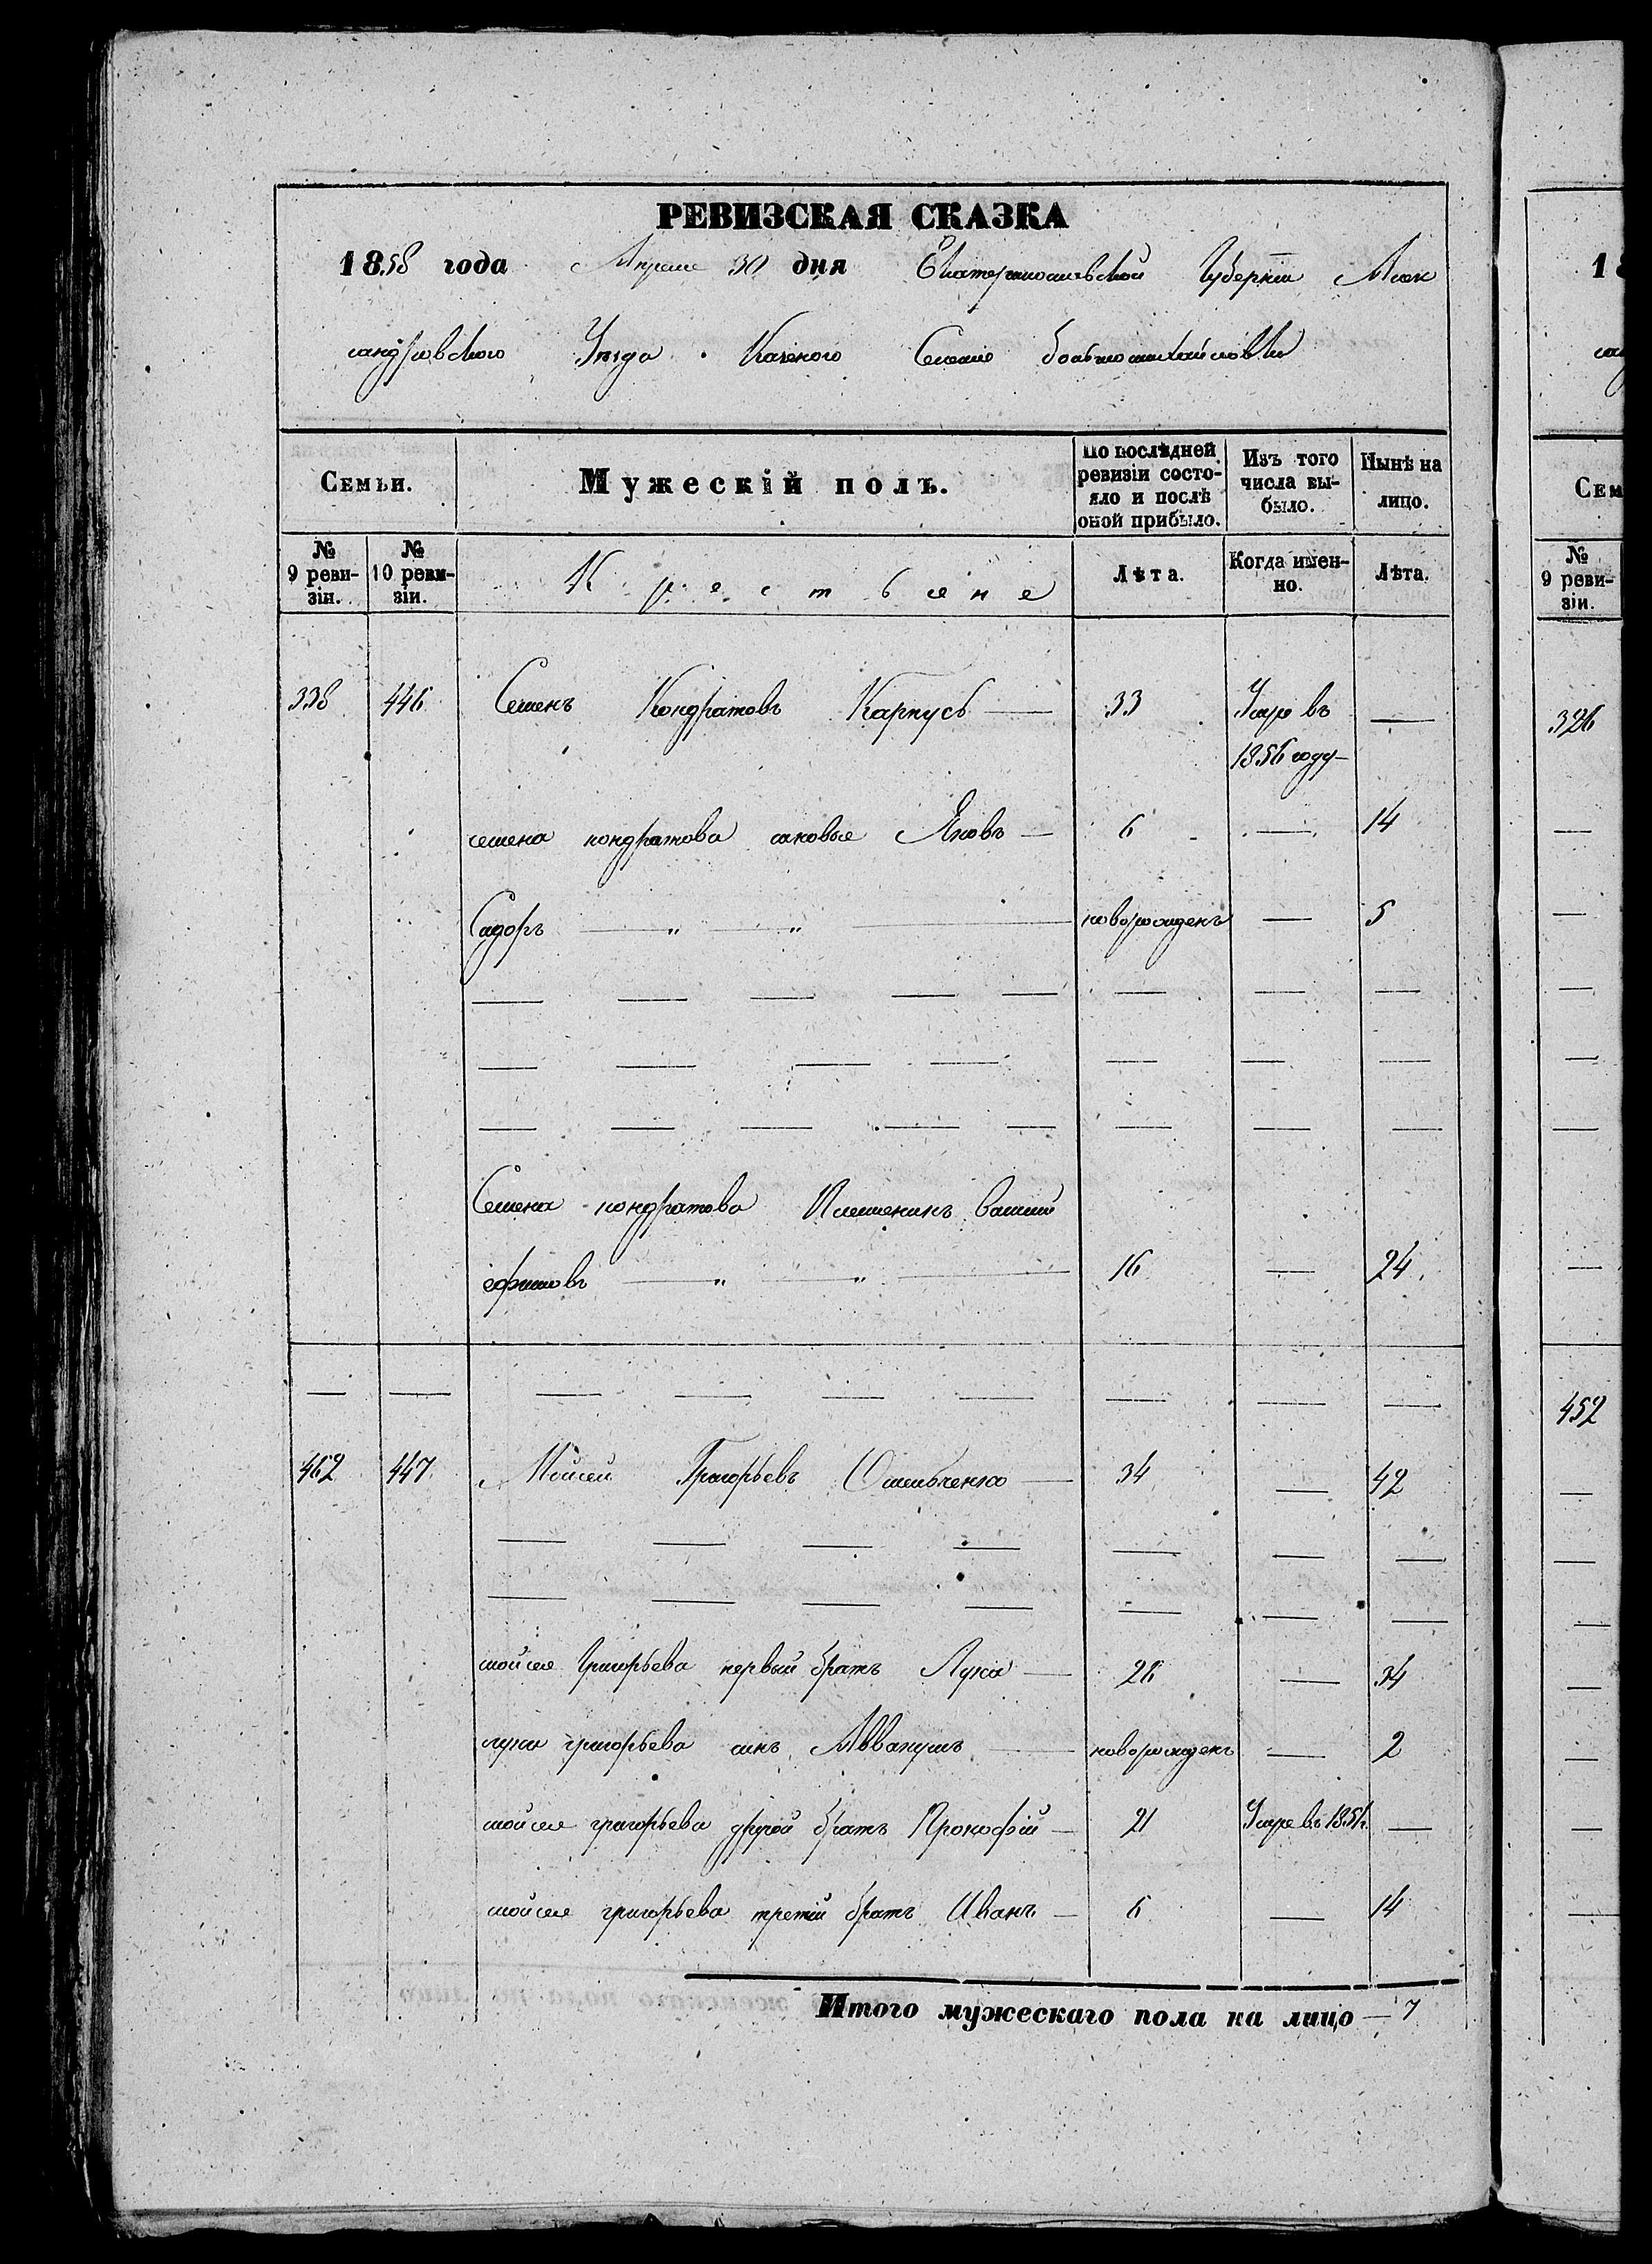 РЕВИЗСКАЯ СКАЗКА
1858 года Апреля 30 дня Екатеринославской Губерніи Алек
сандровского Уезда Казеного Селенія большемихайловки
Семьи. Мужескій полъ. По послѣдней ревизіи состояло и послѣ оной прибыло. Изъ того числа выбыло. Нынѣ на лицо.
№ 9 ревизіи. № 10 ревизіи. Крестьяне Лѣта. Когда именно. Лѣта.
338 446 Семенъ Кондратовъ Карпусь — 33 Умре въ —
1856 году —
семена кондратова сыновье Яковъ — 6 — 14
Сидоръ — " — " — новорожденъ — 5
Семена кондратова Племеникъ
ефимовъ — " — " — 16 — 24
462 447 Мойсей Григорьевъ — 34 — 42
мойсея Григорьева первый братъ Лука — 26 — 34
луки григорьева синъ — новорожденъ — 2
мойсея григорьева другой братъ Прокофій — 21 Умре въ —
мойсея григорьева третій братъ Иванъ — 6 — 14
Итого мужескаго пола на лицо — 7
18
Сем
№ 9 ревизіи.
326
452